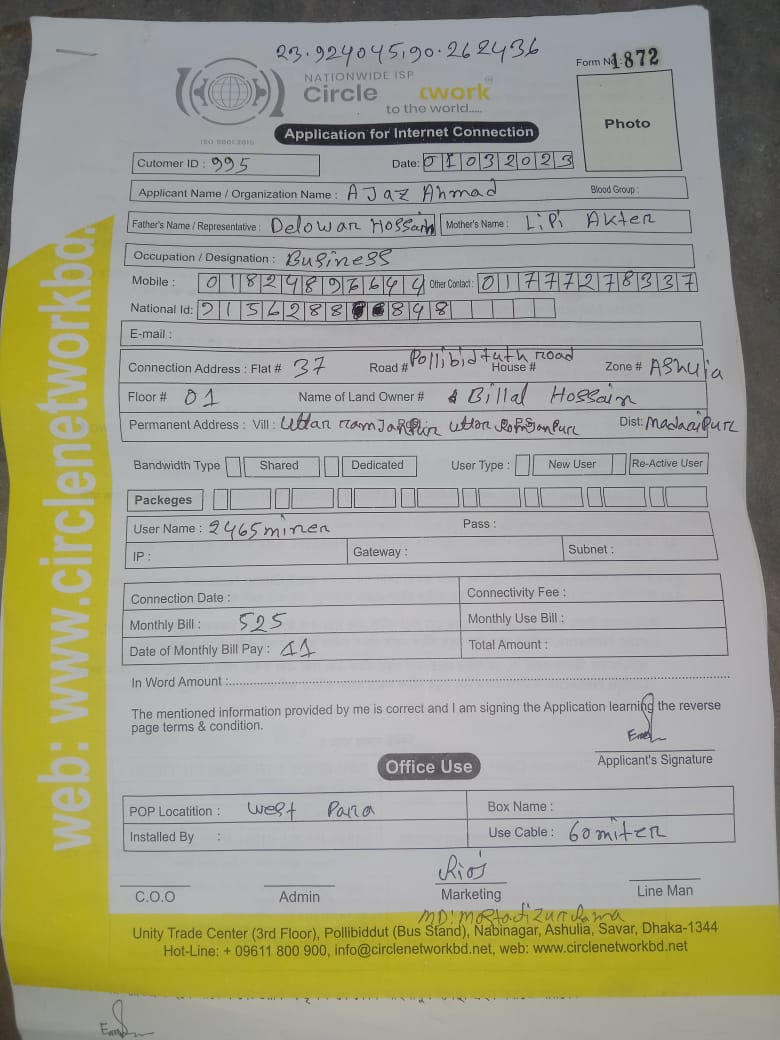 23.924045,90.262436
Form No: 1872
NATIONWIDE ISP
Circle twork
to the world.....
ISO 9001:2015
Photo
Application for Internet Connection
Cutomer ID : 995 Date: 01032023
Applicant Name / Organization Name : AJaz Ahmad Blood Group :
Father's Name / Representative : Delowar Hossain Mother's Name : LiPi Akter
Occupation / Designation : Business
Mobile : 01824897644 Other Contact : 01777278337
National Id: 9156288 848
E-mail :
Connection Address : Flat # 37 Road # Pollibidtuth road House # Zone # Ashulia
Floor # 01 Name of Land Owner # Billal Hossain
Permanent Address : Vill : Uttar Uttar Dist: Madaripur
Bandwidth Type Shared Dedicated User Type : New User Re-Active User
Packeges
User Name : 2465miner Pass :
IP : Gateway : Subnet :
Connection Date : Connectivity Fee :
Monthly Bill : 525 Monthly Use Bill :
Date of Monthly Bill Pay : 11 Total Amount :
In Word Amount :
The mentioned information provided by me is correct and I am signing the Application learning the reverse
page terms & condition.
Applicant's Signature
Office Use
POP Locatition : west Para Box Name :
Installed By : Use Cable : 60 miter
C.O.O Admin Marketing Line Man
MD:
Unity Trade Center (3rd Floor), Pollibiddut (Bus Stand), Nabinagar, Ashulia, Savar, Dhaka-1344
Hot-Line: + 09611 800 900, info@circlenetworkbd.net, web: www.circlenetworkbd.net
web: www.circlenetworkbd.